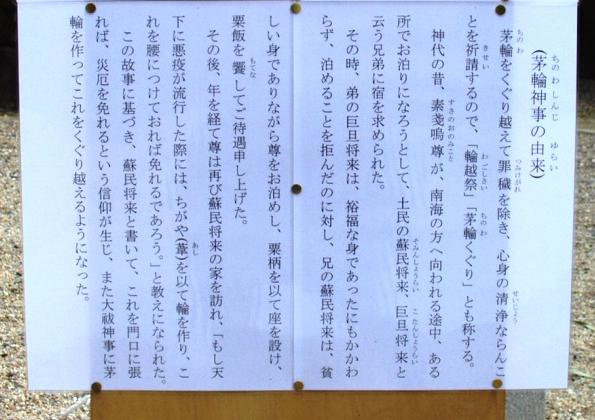 (茅輪神事の由来)
茅輪をくぐり越えて罪穢を除き、心身の清浄ならんこ
とを祈請するので、「輪越祭」「茅輪くぐり」とも称する。
神代の昔、素戔嗚尊が、南海の方へ向われる途中、ある
所でお泊りになろうとして、土民の蘇民将来、巨旦将来と
云う兄弟に宿を求められた。
その時、弟の巨旦将来は、裕福な身であったにもかかわ
らず、泊めることを拒んだのに対し、兄の蘇民将来は、貧
しい身でありながら尊をお泊めし、粟柄を以て座を設け、
粟飯を饗してご待遇申し上げた。
その後、年を経て尊は再び蘇民将来の家を訪れ、「もし天
下に悪疫が流行した際には、ちがや(葦)を以て輪を作り、こ
れを腰につけておれば免れるであろう。」と教えになられた。
この故事に基づき、蘇民将来と書いて、これを門口に張
れば、災厄を免れるという信仰が生じ、また大祓神事に茅
輪を作ってこれをくぐり越えるようになった。